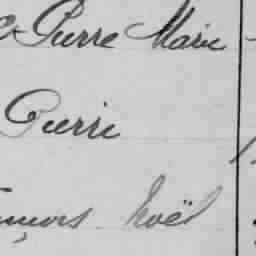 Pierre Marie
Pierre
Noël